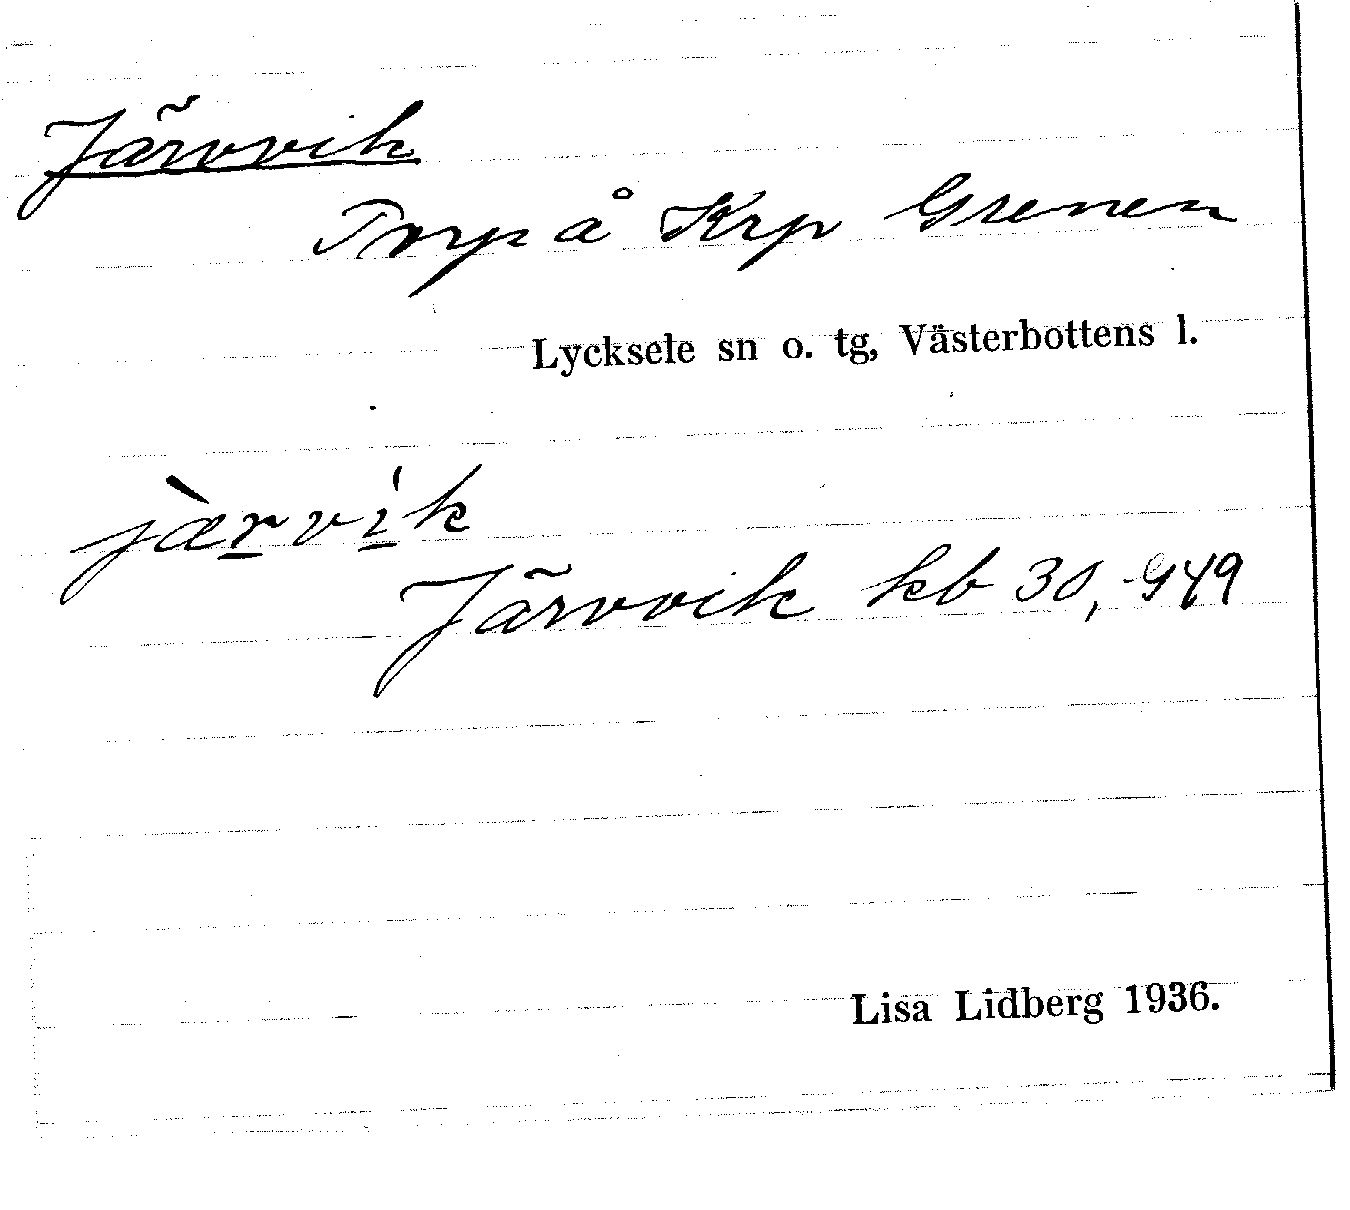 Järvvik
Torp å Krp Grenen
Lycksele sn o. tg, Västerbottens l.
jæ̀rvík
Järvvik kb 30, 949
Lisa Lidberg 1936.